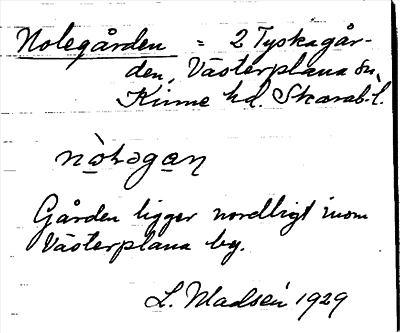 Nolegården = 2 Tyskagår-
den, Västerplana sn,
Kinne hd. Skarab. l.
Gården ligger nordligt inom
Västerplana by.
L. Madsén 1929